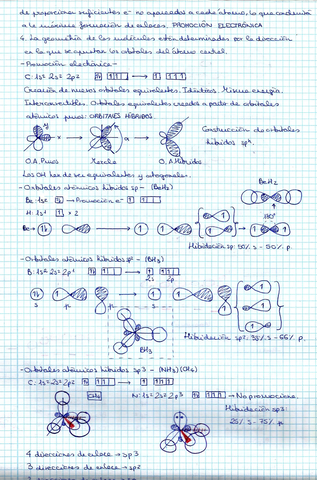 de proporcionar suficientes e⁻ no apareados a cada átomo, lo que conducirá
a la máxima formación de enlaces. PROMOCIÓN ELECTRÓNICA
4. La geometría de las moléculas están determinadas por la dirección
en la que se apuntan los orbitales del átomo central.
- Promoción electrónica -
C: 1s² 2s² 2p²
Creación de nuevos orbitales equivalentes. Idénticos. Misma energía.
Intercambiables. Orbitales equivalentes creados a partir de orbitales
atómicos puros: ORBITALES HÍBRIDOS.
Construcción de orbitales
híbridos spˣ.
O.A. Puros Mezcla O.A. Híbridos
Los OH han de ser equivalentes y ortogonales.
- Orbitales atómicos híbridos sp - (BeH₂)
BeH₂
Be: 1s² → Promoción e⁻
H: 1s¹ x 2
180°
Be →
Hibridación sp: 50% s - 50% p.
- Orbitales atómicos híbridos sp² - (BH₃)
B: 1s² 2s² 2p¹
2s 2p
s p s
BH₃
Hibridación sp²: 33% s - 66% p.
- Orbitales atómicos híbridos sp3 - (NH₃)(CH₄)
C: 1s² 2s² 2p²
CH₄ N: 1s² 2s² 2p³ → No promociona.
Hibridación sp3:
25% s - 75% p.
4 direcciones de enlace → sp3
3 direcciones de enlace → sp2